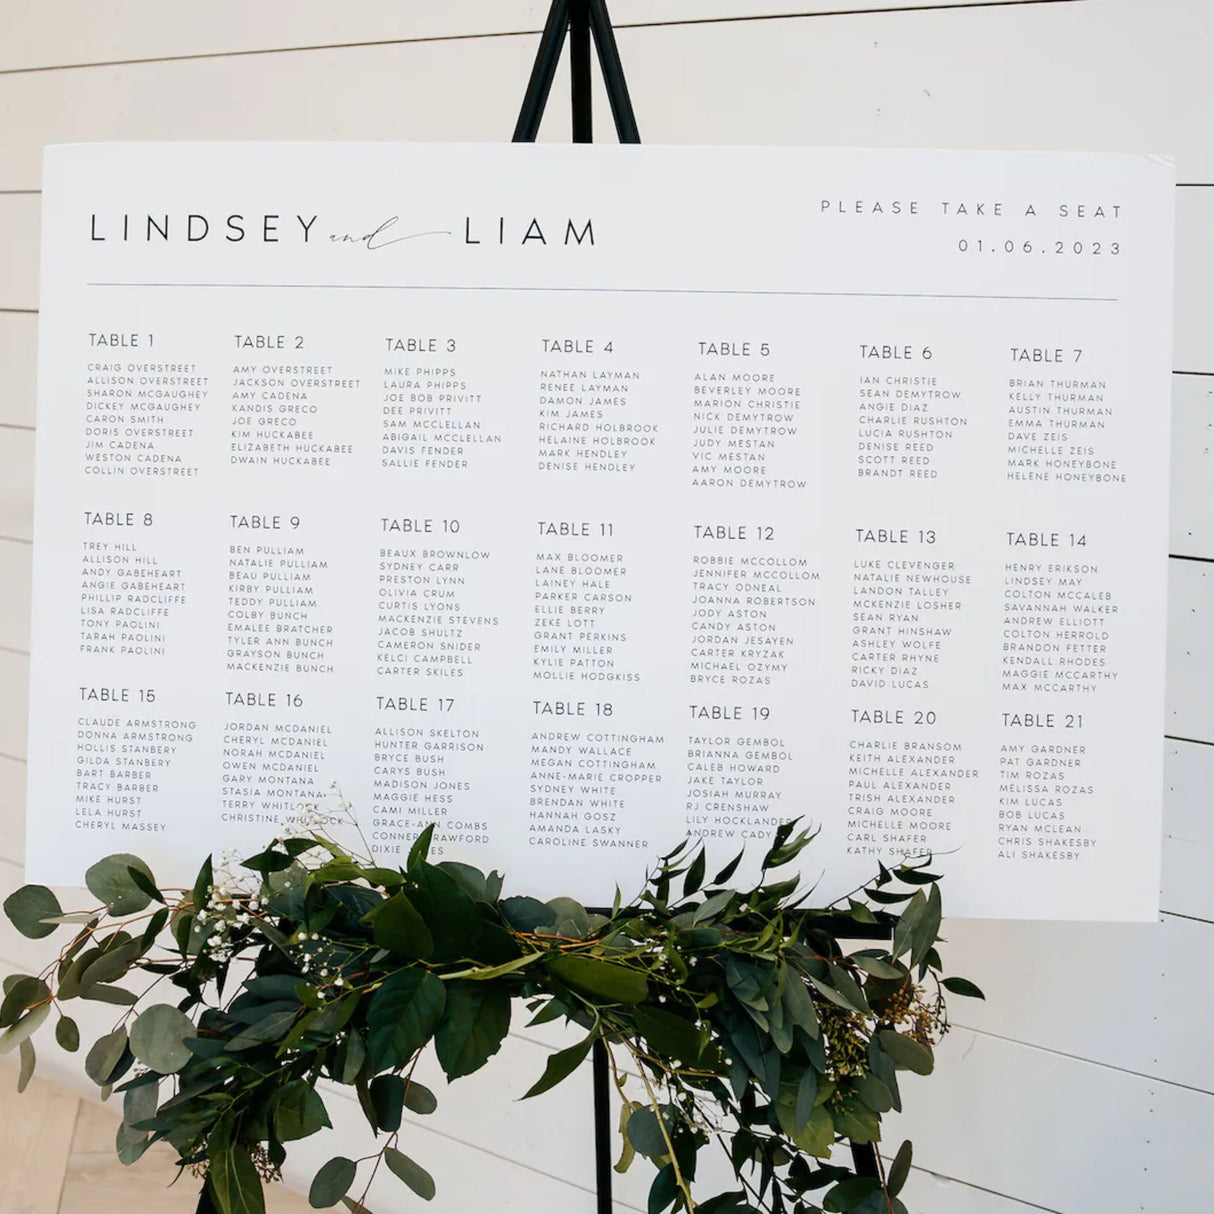 LINDSEY and LIAM
PLEASE TAKE A SEAT
01.06.2023
TABLE 1
CRAIG OVERSTREET
ALLISON OVERSTREET
SHARON MCGAUGHEY
DICKEY MCGAUGHEY
CARON SMITH
DORIS OVERSTREET
JIM CADENA
WESTON CADENA
COLLIN OVERSTREET
TABLE 2
AMY OVERSTREET
JACKSON OVERSTREET
AMY CADENA
KANDIS GRECO
JOE GRECO
KIM HUCKABEE
ELIZABETH HUCKABEE
DWAIN HUCKABEE
TABLE 3
MIKE PHIPPS
LAURA PHIPPS
JOE BOB PRIVITT
DEE PRIVITT
SAM MCCLELLAN
ABIGAIL MCCLELLAN
DAVIS FENDER
SALLIE FENDER
TABLE 4
NATHAN LAYMAN
RENEE LAYMAN
DAMON JAMES
KIM JAMES
RICHARD HOLBROOK
HELAINE HOLBROOK
MARK HENDLEY
DENISE HENDLEY
TABLE 5
ALAN MOORE
BEVERLEY MOORE
MARION CHRISTIE
NICK DEMYTROW
JULIE DEMYTROW
JUDY MESTAN
VIC MESTAN
AMY MOORE
AARON DEMYTROW
TABLE 6
IAN CHRISTIE
SEAN DEMYTROW
ANGIE DIAZ
CHARLIE RUSHTON
LUCIA RUSHTON
DENISE REED
SCOTT REED
BRANDT REED
TABLE 7
BRIAN THURMAN
KELLY THURMAN
AUSTIN THURMAN
EMMA THURMAN
DAVE ZEIS
MICHELLE ZEIS
MARK HONEYBONE
HELENE HONEYBONE
TABLE 8
TREY HILL
ALLISON HILL
ANDY GABEHEART
ANGIE GABEHEART
PHILLIP RADCLIFFE
LISA RADCLIFFE
TONY PAOLINI
TARAH PAOLINI
FRANK PAOLINI
TABLE 9
BEN PULLIAM
NATALIE PULLIAM
BEAU PULLIAM
KIRBY PULLIAM
TEDDY PULLIAM
COLBY BUNCH
EMALEE BRATCHER
TYLER ANN BUNCH
GRAYSON BUNCH
MACKENZIE BUNCH
TABLE 10
BEAUX BROWNLOW
SYDNEY CARR
PRESTON LYNN
OLIVIA CRUM
CURTIS LYONS
MACKENZIE STEVENS
JACOB SHULTZ
CAMERON SNIDER
KELCI CAMPBELL
CARTER SKILES
TABLE 11
MAX BLOOMER
LANE BLOOMER
LAINEY HALE
PARKER CARSON
ELLIE BERRY
ZEKE LOTT
GRANT PERKINS
EMILY MILLER
KYLIE PATTON
MOLLIE HODGKISS
TABLE 12
ROBBIE MCCOLLOM
JENNIFER MCCOLLOM
TRACY ODNEAL
JOANNA ROBERTSON
JODY ASTON
CANDY ASTON
JORDAN JESAYEN
CARTER KRYZAK
MICHAEL OZYMY
BRYCE ROZAS
TABLE 13
LUKE CLEVENGER
NATALIE NEWHOUSE
LANDON TALLEY
MCKENZIE LOSHER
SEAN RYAN
GRANT HINSHAW
ASHLEY WOLFE
CARTER RHYNE
RICKY DIAZ
DAVID LUCAS
TABLE 14
HENRY ERIKSON
LINDSEY MAY
COLTON MCCALEB
SAVANNAH WALKER
ANDREW ELLIOTT
COLTON HERROLD
BRANDON FETTER
KENDALL RHODES
MAGGIE MCCARTHY
MAX MCCARTHY
TABLE 15
CLAUDE ARMSTRONG
DONNA ARMSTRONG
HOLLIS STANBERY
GILDA STANBERY
BART BARBER
TRACY BARBER
MIKE HURST
LELA HURST
CHERYL MASSEY
TABLE 16
JORDAN MCDANIEL
CHERYL MCDANIEL
NORAH MCDANIEL
OWEN MCDANIEL
GARY MONTANA
STASIA MONTANA
TERRY WHITLOCK
CHRISTINE WHITLOCK
TABLE 17
ALLISON SKELTON
HUNTER GARRISON
BRYCE BUSH
CARYS BUSH
MADISON JONES
MAGGIE HESS
CAMI MILLER
GRACE-ANN COMBS
CONNER CRAWFORD
DIXIE
TABLE 18
ANDREW COTTINGHAM
MANDY WALLACE
MEGAN COTTINGHAM
ANNE-MARIE CROPPER
SYDNEY WHITE
BRENDAN WHITE
HANNAH GOSZ
AMANDA LASKY
CAROLINE SWANNER
TABLE 19
TAYLOR GEMBOL
BRIANNA GEMBOL
CALEB HOWARD
JAKE TAYLOR
JOSIAH MURRAY
RJ CRENSHAW
LILY HOCKLANDER
ANDREW CADY
TABLE 20
CHARLIE BRANSOM
KEITH ALEXANDER
MICHELLE ALEXANDER
PAUL ALEXANDER
TRISH ALEXANDER
CRAIG MOORE
MICHELLE MOORE
CARL SHAFER
KATHY SHAFER
TABLE 21
AMY GARDNER
PAT GARDNER
TIM ROZAS
MELISSA ROZAS
KIM LUCAS
BOB LUCAS
RYAN MCLEAN
CHRIS SHAKESBY
ALI SHAKESBY